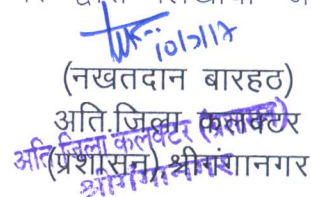 10/7/17
(नखतदान बारहठ)
अति.जिला कलक्टर
(प्रशासन),श्रीगंगानगर
अति जिला कलक्टर (प्रशासन)
श्रीगंगानगर